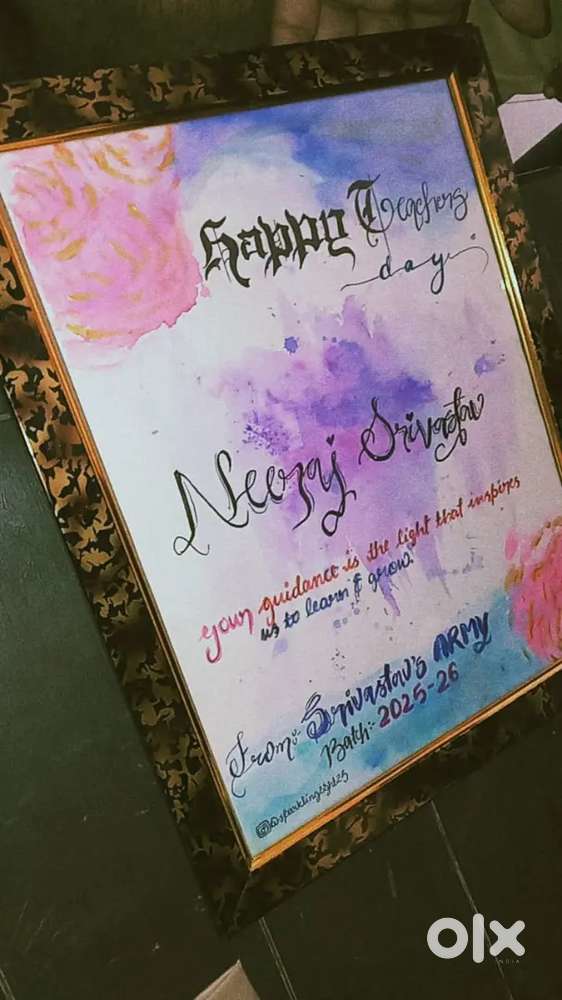 Happy Teachers
day
Neeraj Srivastav
your guidance is the light that inspires
us to learn & grow.
From: Srivastav's ARMY
Batch:- 2025-26
olx
INDIA